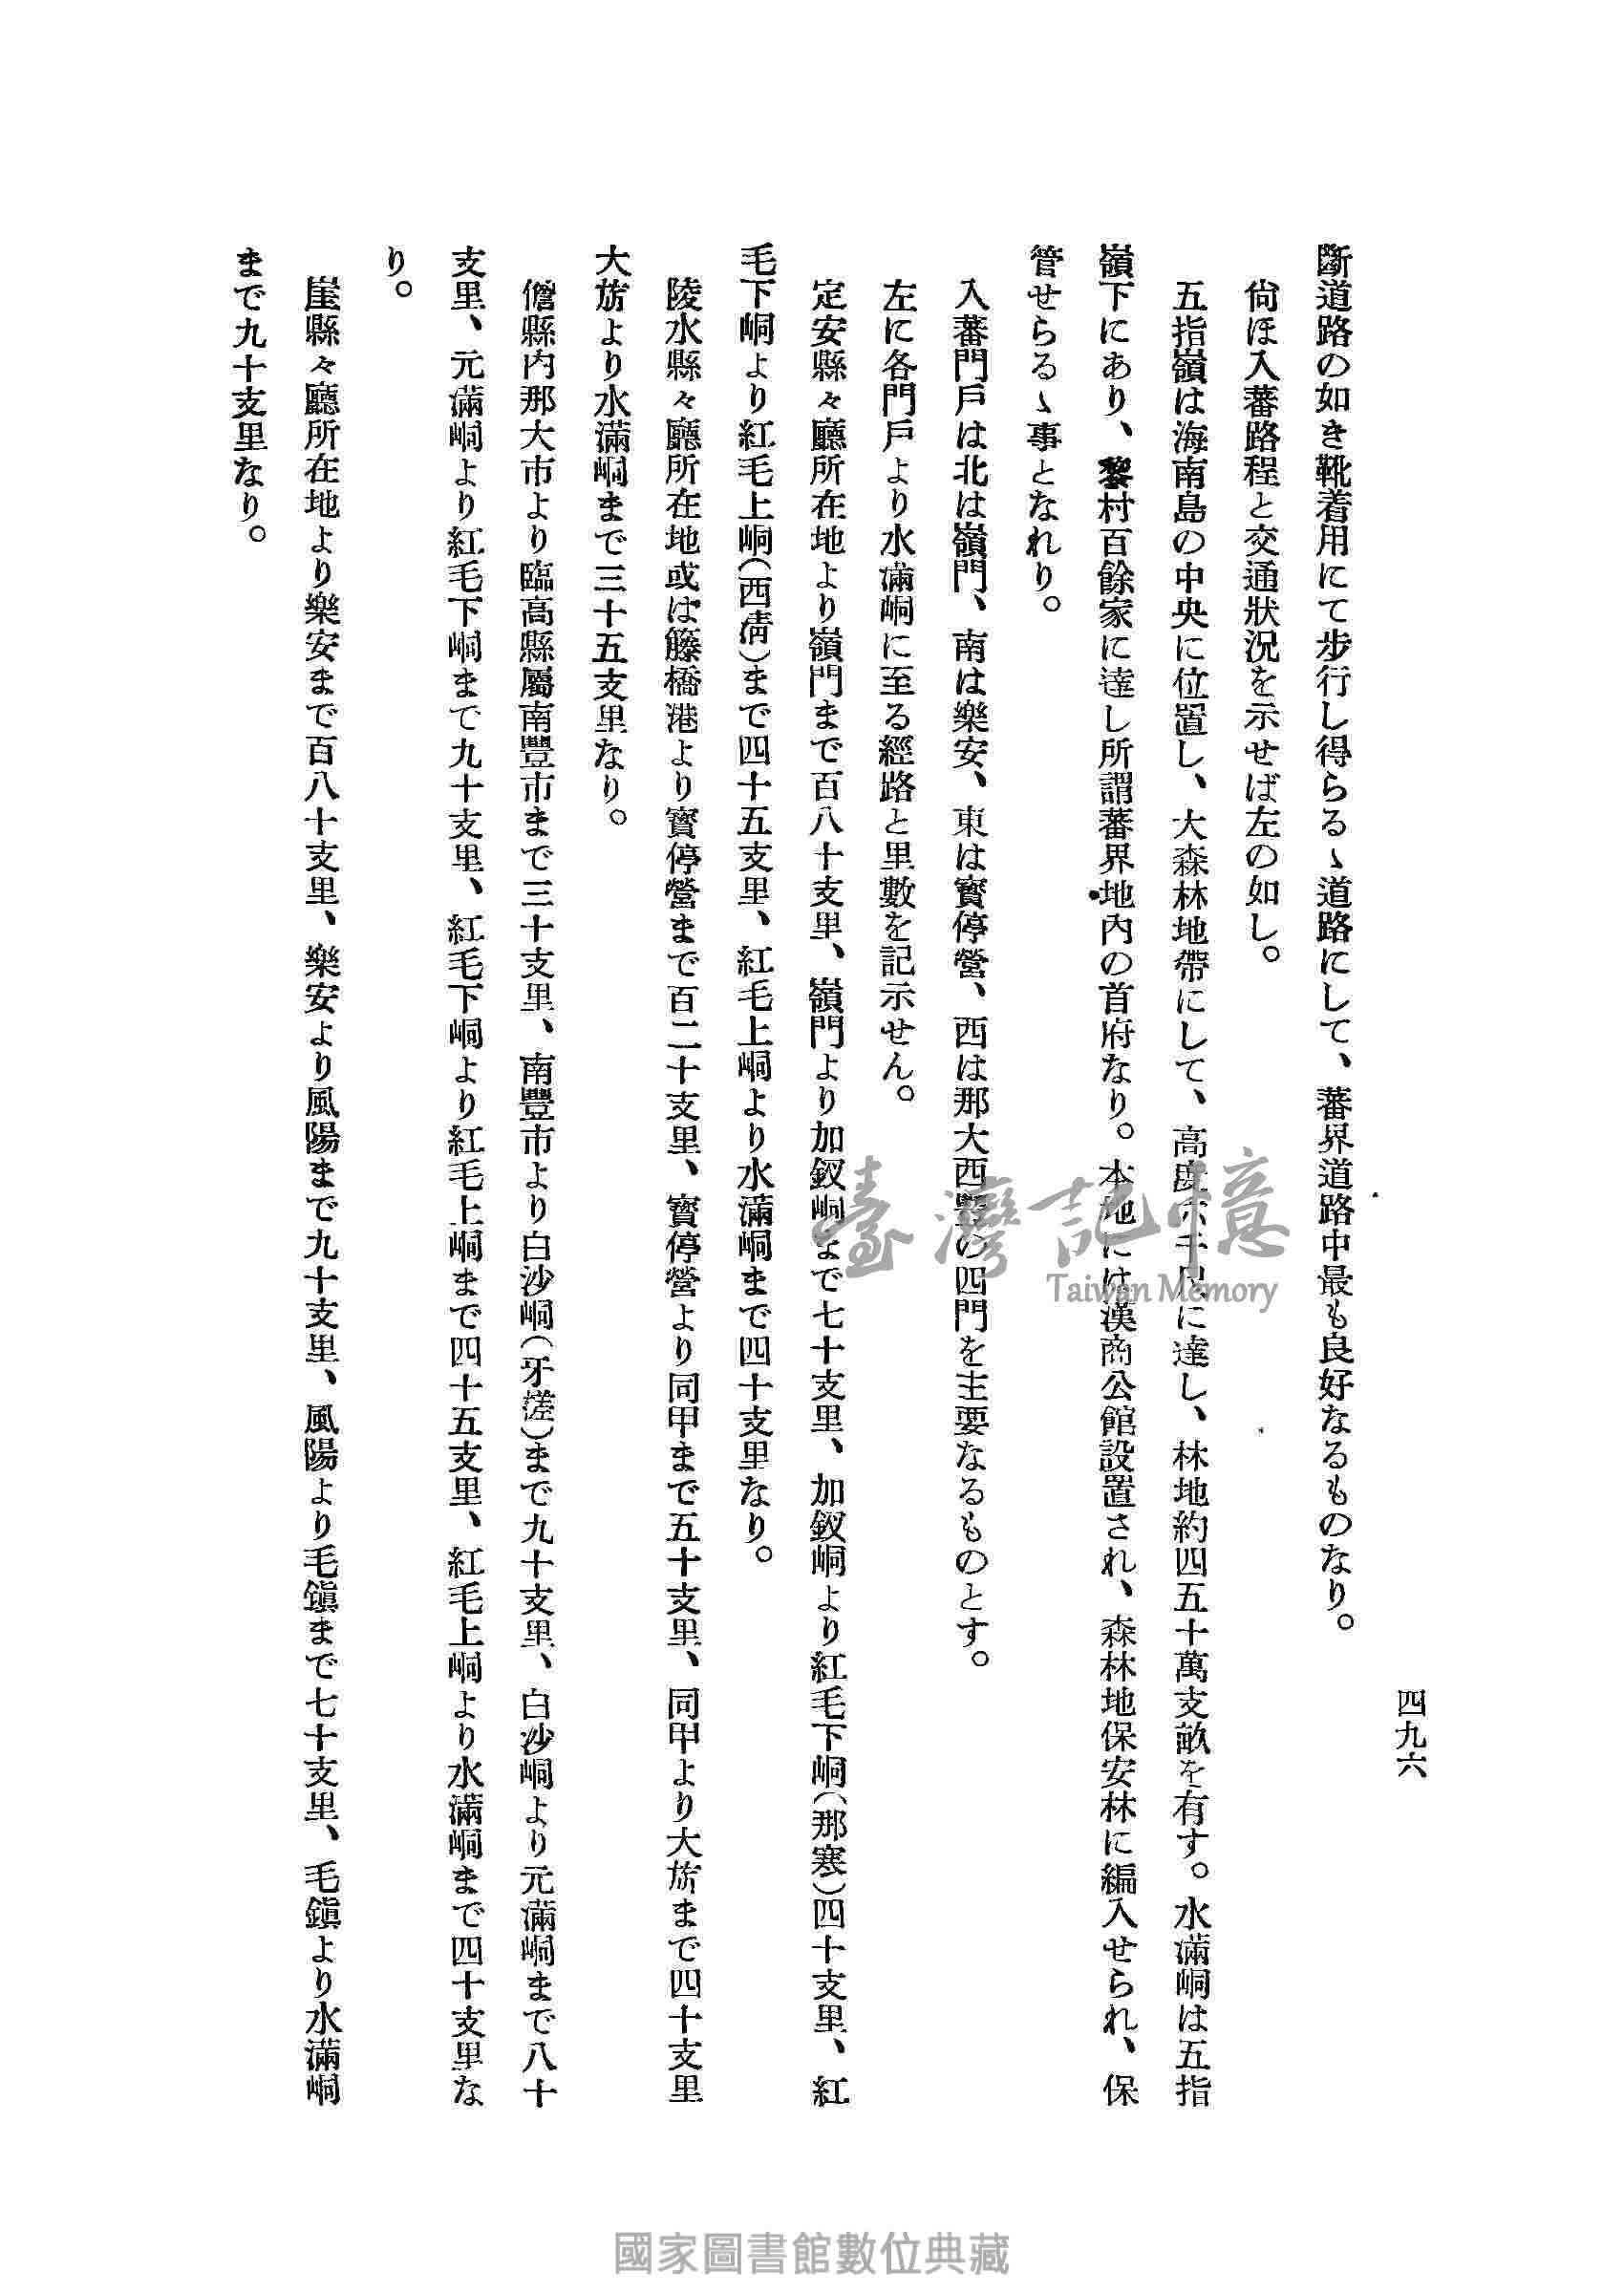 四九六
斷道路の如き靴着用にて步行し得らるゝ道路にして、蕃界道路中最も良好なるものなり。
尙ほ入蕃路程と交通狀況を示せば左の如し。
五指嶺は海南島の中央に位置し、大森林地帶にして、高度六千尺に達し、林地約四五十萬支畝を有す。水滿峒は五指
嶺下にあり、黎村百餘家に達し所謂蕃界地內の首府なり。本地には漢商公館設置され、森林地保安林に編入せられ、保
管せらるゝ事となれり。
入蕃門戶は北は嶺門、南は樂安、東は寳停營、西は那大西豐の四門を主要なるものとす。
左に各門戶より水滿峒に至る經路と里數を記示せん。
定安縣々廳所在地より嶺門まで百八十支里、嶺門より加釵峒まで七十支里、加釵峒より紅毛下峒(那寒)四十支里、紅
毛下峒より紅毛上峒(西淸)まで四十五支里、紅毛上峒より水滿峒まで四十支里なり。
陵水縣々廳所在地或は籐橋港より寳停營まで百二十支里、寳停營より同甲まで五十支里、同甲より大旂まで四十支里
大旂より水滿峒まで三十五支里なり。
儋縣內那大市より臨高縣屬南豐市まで三十支里、南豐市より白沙峒(牙)まで九十支里、白沙峒より元滿峒まで八十
支里、元滿峒より紅毛下峒まで九十支里、紅毛下峒より紅毛上峒まで四十五支里、紅毛上峒より水滿峒まで四十支里な
り。
崖縣々廳所在地より樂安まで百八十支里、樂安より風陽まで九十支里、風陽より毛鎭まで七十支里、毛鎭より水滿峒
まで九十支里なり。
臺灣記憶
Taiwan Memory
國家圖書館數位典藏